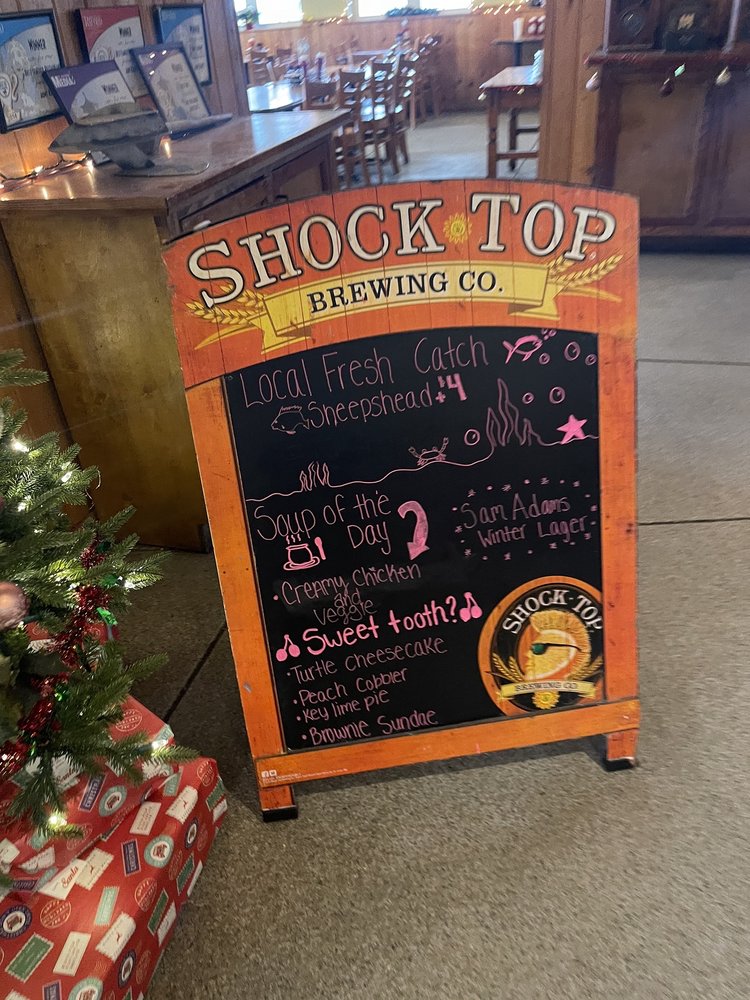 WINNER
WINNER
WINNER
SHOCK TOP
BREWING CO.
Local Fresh Catch
Sheepshead +$4
Soup of the
Day
Sam Adams
Winter Lager
• Creamy Chicken
and
Veggie
Sweet tooth?
• Turtle Cheesecake
• Peach Cobbler
• Key lime pie
• Brownie Sundae
SHOCK TOP
BREWING CO.
Santa